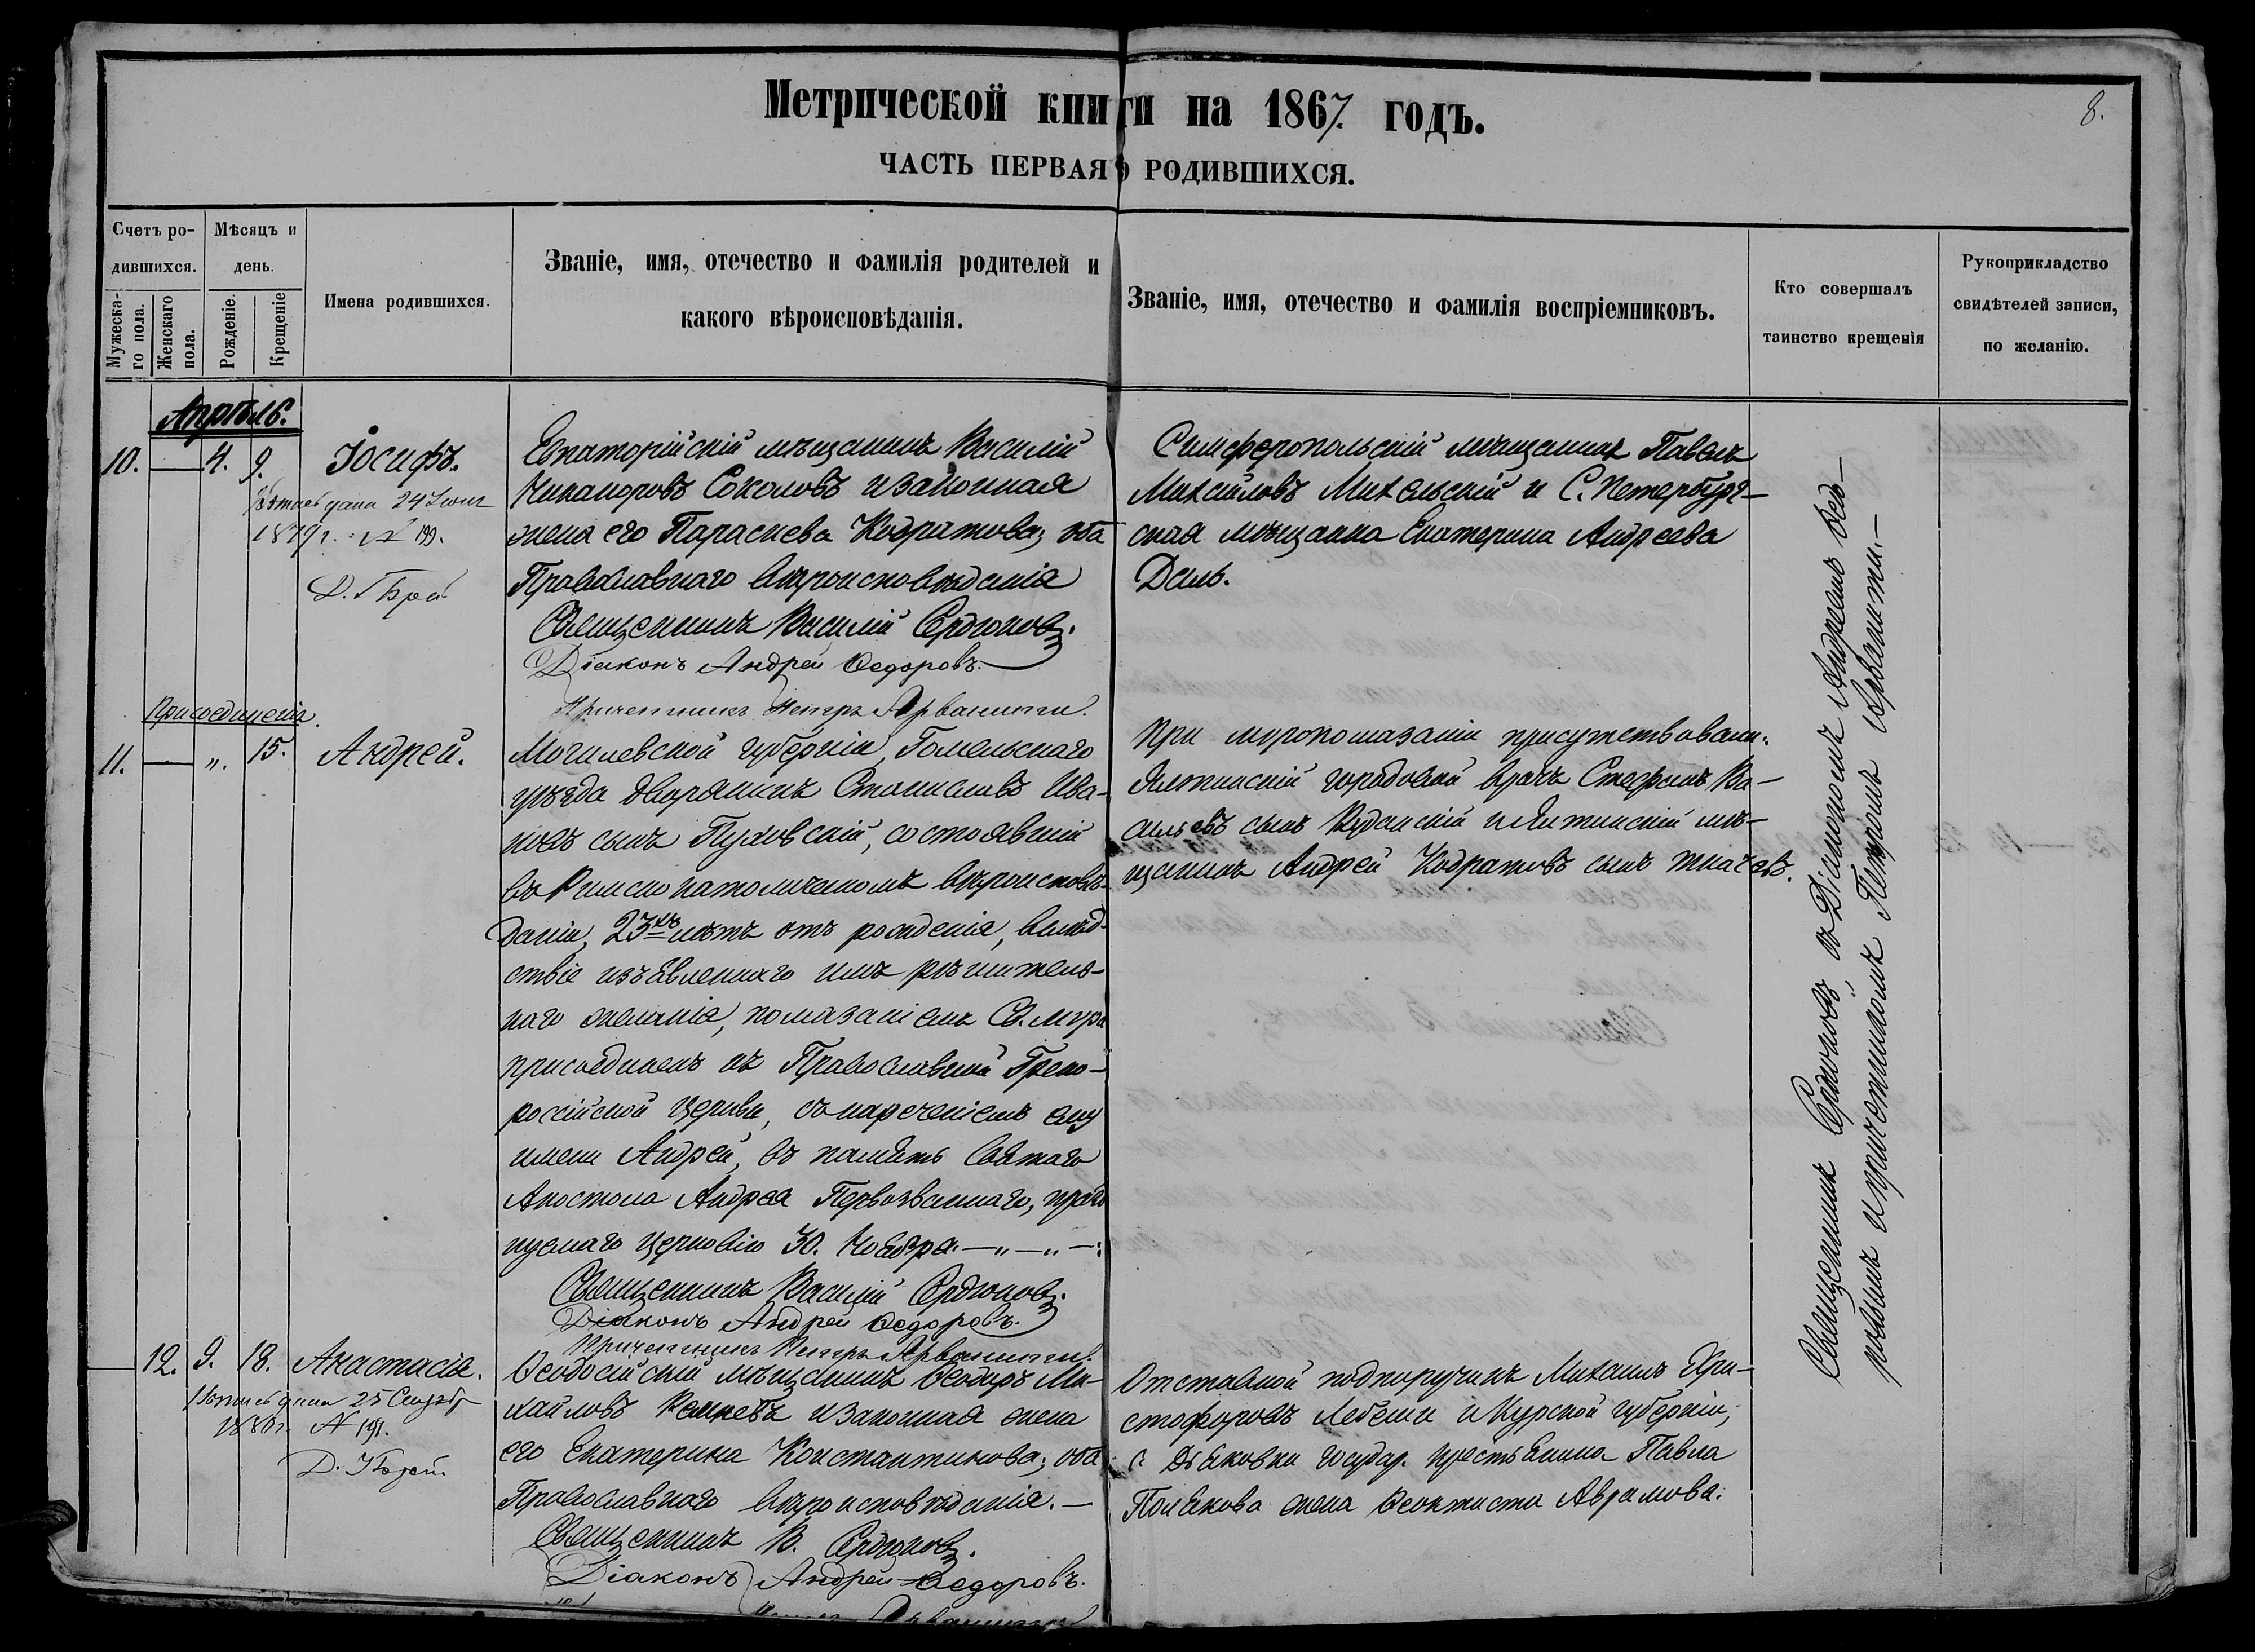 8.
Метрической книги на 1867. годъ.
ЧАСТЬ ПЕРВАЯ О РОДИВШИХСЯ.
Счетъ ро-
дившихся.
Мужеска-
го пола.
Женскаго
пола.
Мѣсяцъ и
день.
Рожденіе.
Крещеніе
Имена родившихся.
Званіе, имя, отечество и фамилія родителей и
какого вѣроисповѣданія.
Званіе, имя, отечество и фамилія воспріемниковъ.
Кто совершалъ
таинство крещенія
Рукоприкладство
свидѣтелей записи,
по желанію.
Апрѣль.
10. — 4. 9. Іосифъ.
дана 24
1879г. № 199.
Евпаторійскій мѣщанинъ Василій
Никаноровъ Соколовъ и законная
жена его Параскева Кодратова; оба
Православнаго вѣроисповѣданія
Священникъ Василій Сердюковъ.
Діаконъ Андрей Ѳедоровъ.
Причетникъ Петръ Арванити.
Симферопольскій мѣщанинъ Павелъ
Михайловъ Михельскій и С. Петербург-
ская мѣщанка Екатерина Андреева
Даль.
Присоединенія.
11. — „. 15. Андрей.
Могилевской губерніи, Гомельскаго
уѣзда дворянинъ Станиславъ Ива-
новъ сынъ Пуховскій, состоявшій
въ Римско католическомъ вѣроисповѣ-
даніи, 23хъ лѣтъ отъ рожденія, вслѣд-
ствіе изъявленнаго имъ рѣшитель-
наго желанія, помазаніемъ Св. Мура
присоединенъ къ Православной Греко-
россійской Церкви, съ нареченіемъ ему
имени Андрей, въ память Святаго
Апостола Андрея Первозваннаго, празд
нуемаго Церковію 30. Ноября. — „ — „ —:
Священникъ Василій Сердюковъ.
Діаконъ Андрей Ѳедоровъ.
Причетникъ Петръ Арванити.
При муропомазаніи присутствовали:
Ялтинскій городовой врачъ Стефанъ Ва-
сильевъ сынъ и Ялтинскій мѣ-
щанинъ Андрей Кодратовъ сынъ Ткачевъ.
— 12. 9. 18. Анастасія.
дана 25
1880г. № 191.
Ѳеодосійскій мѣщанинъ Ѳеодоръ Ми-
хайловъ и законная жена
его Екатерина Константинова; оба
Православнаго вѣроисповѣданія. —
Священникъ В. Сердюковъ.
Діаконъ Андрей Ѳедоровъ.
Арванити
Отставной подпоручикъ Михаилъ Хри-
стофоровъ и Курской губерніи,
с. Дьяковки государ. крестьянина Павла
Полякова жена Ѳеоктиста Аврамова.
Священникъ Сердюковъ, съ Діакономъ Андреемъ Ѳедо-
ровымъ и причетникомъ Петромъ Арванити. —